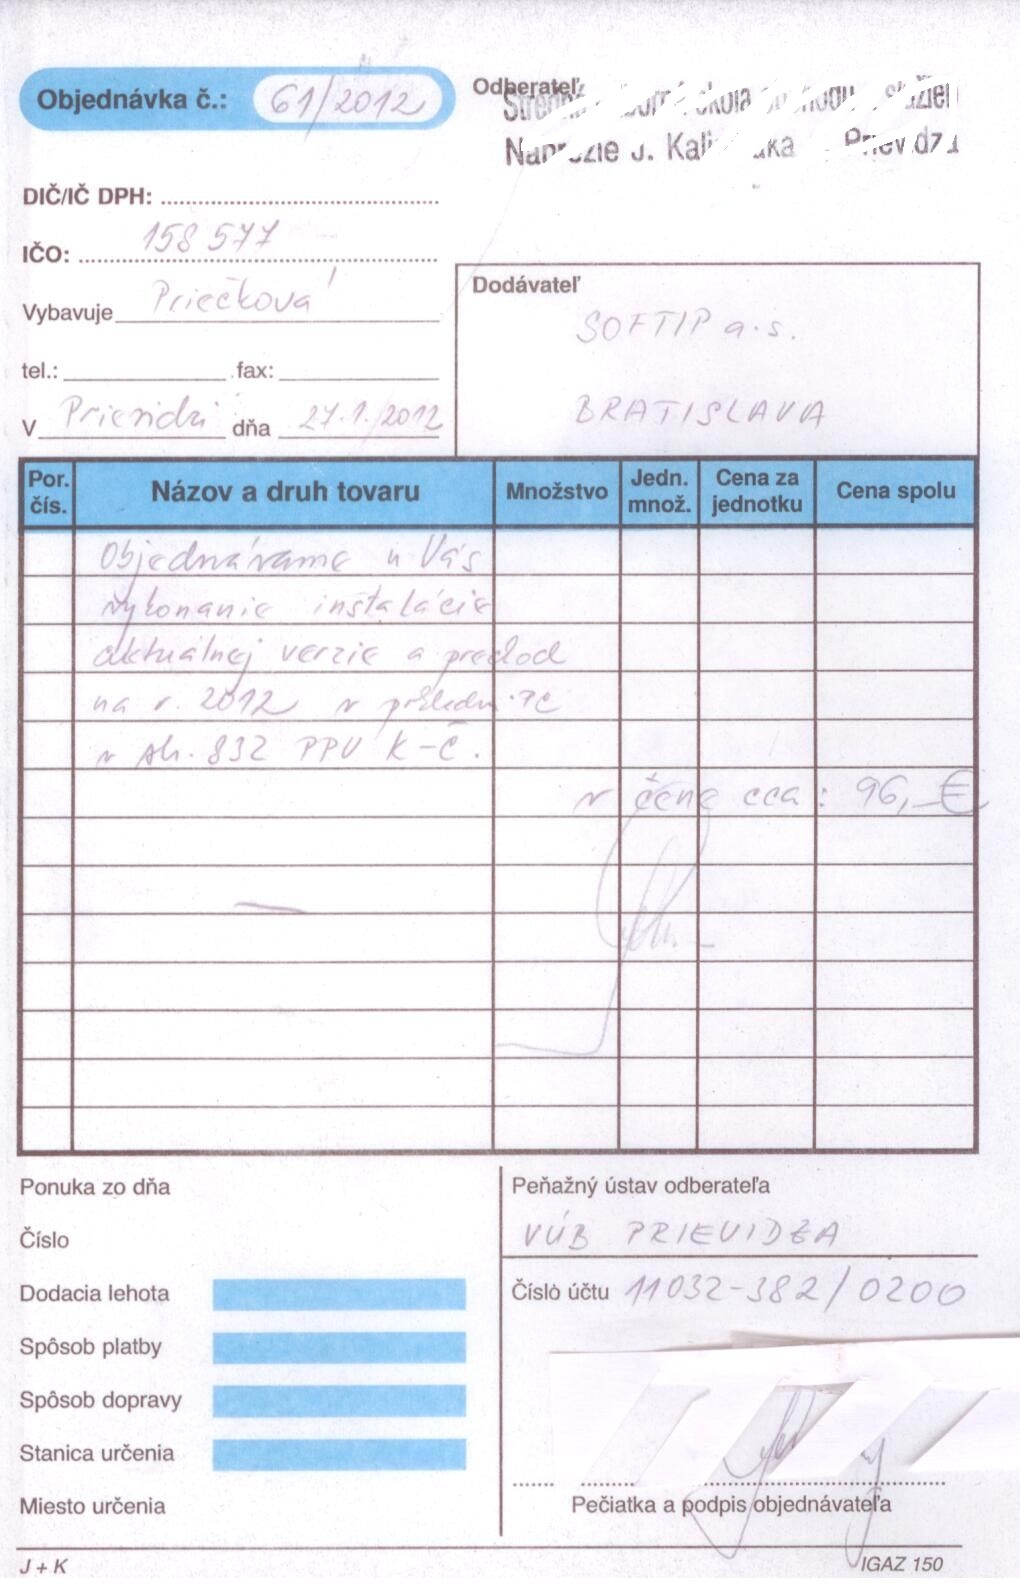 Objednávka č.: 61/2012
Odberateľ
Prievidza
DIČ/IČ DPH:
IČO: 158 577
Vybavuje Priečková
Dodávateľ
SOFTIP a.s.
tel.: fax:
BRATISLAVA
V Prievidzi dňa 27.1./2012
Por. čís. Názov a druh tovaru Množstvo Jedn. množ. Cena za jednotku Cena spolu
Objednávame u Vás
vykonanie inštalácie
aktuálnej verzie a prechod
na r. 2012 v
v str. 832 PPV K-Č.
v cene cca: 96,-€
Ponuka zo dňa
Peňažný ústav odberateľa
Číslo
VÚB PRIEVIDZA
Dodacia lehota
Číslo účtu 11032-382/0200
Spôsob platby
Spôsob dopravy
Stanica určenia
Miesto určenia
Pečiatka a podpis objednávateľa
J + K
IGAZ 150